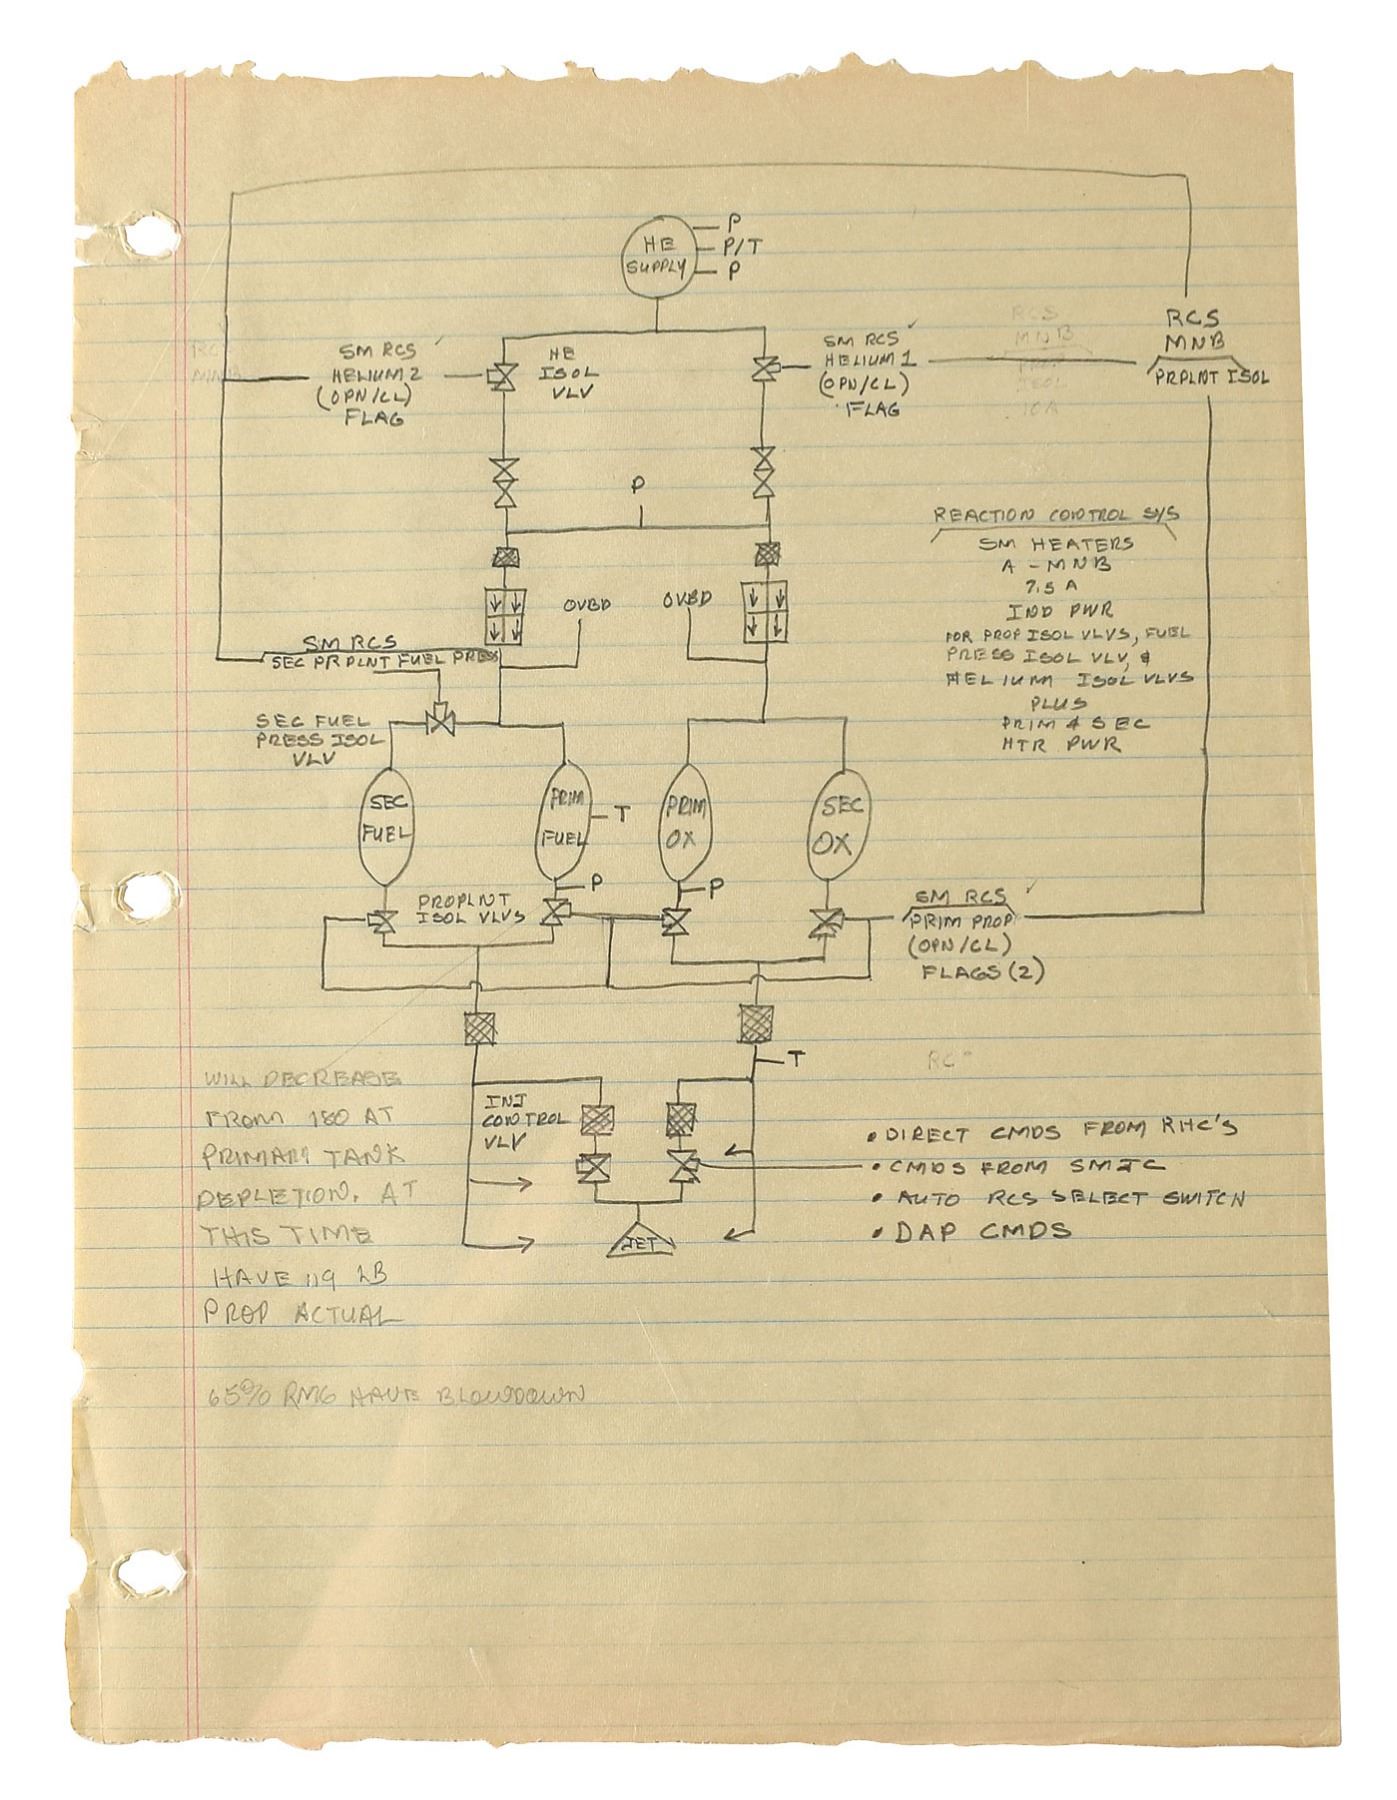 P
HE
SUPPLY
P/T
P
RCS
MNB
PRPLNT ISOL
RCS
MNB
10A
SM RCS
HELIUM 2
(OPN/CL)
FLAG
HE
ISOL
VLV
SM RCS
HELIUM 1
(OPN/CL)
FLAG
P
REACTION CONTROL S/S
SM HEATERS
A - MNB
7.5 A
IND PWR
FOR PROP ISOL VLVS, FUEL
PRESS ISOL VLV, &
HELIUM ISOL VLVS
PLUS
PRIM & SEC
HTR PWR
OVBD
OVBD
SM RCS
SEC PRPLNT FUEL PRESS
SEC FUEL
PRESS ISOL
VLV
SEC
FUEL
PRIM
FUEL
T
PRIM
OX
SEC
OX
P
P
PROPLNT
ISOL VLVS
SM RCS
PRIM PROP
(OPN/CL)
FLAGS (2)
T
INJ
CONTROL
VLV
JET
• DIRECT CMDS FROM RHC'S
• CMDS FROM SMJC
• AUTO RCS SELECT SWITCH
• DAP CMDS
WILL DECREASE
FROM 180 AT
PRIMARY TANK
DEPLETION. AT
THIS TIME
HAVE 119 LB
PROP ACTUAL
65% RMG HAVE BLOWDOWN